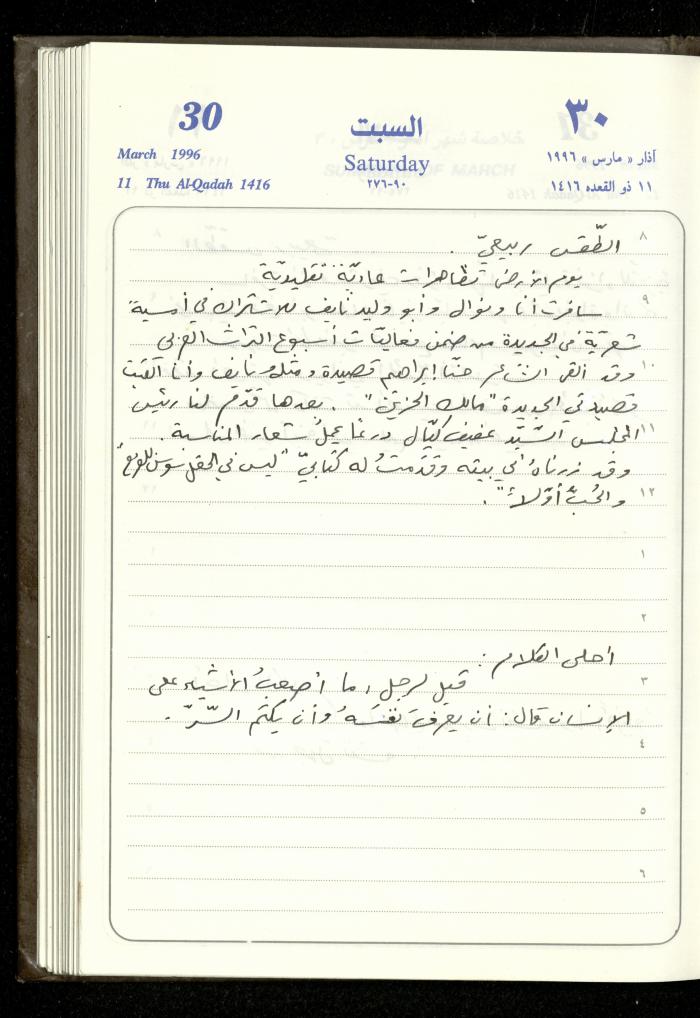 30
السبت
٣٠
March 1996
Saturday
آذار « مارس » ١٩٩٦
11 Thu Al-Qadah 1416
٩٠-٢٧٦
١١ ذو القعده ١٤١٦
٨
الطّقس ربيعيّ .
يوم الأرض تظاهرات عاديّة تقليديّة
٩
سافرت أنا ونوال وأبو وليد نايف للاشتراك في أمسية
شعريّة في الجديدة من ضمن فعاليّات أسبوع التراث العربي
١٠
وقد ألقى الشاعر حنّا إبراهيم قصيدة ومثله نايف وأنا ألقيت
قصيدتي الجديدة "مالك الحزين" . بعدها قدّم لنا رئيس
١١
المجلس السّيّد عفيف كيّال درعًا يحمل شعار المناسبة .
وقد زرناهُ في بيته وقدّمتُ له كتابيّ "ليس في الحقل سوى
١٢
والحُبُّ أوّلاً" .
١
٢
أحلى الكلام :
٣
قيل لرجل ، ما أصعبُ الأشياء على
الإنسان قال : أن يعرفَ نفسَهُ وأن يكتم السّرّ .
٤
٥
٦